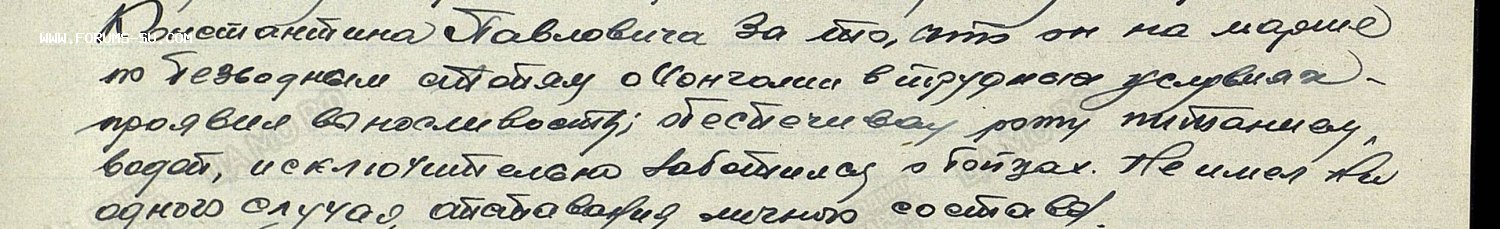 Константина Павловича За то, что он на марше
по безводным степям Монголии в трудных условиях
проявил выносливость; обеспечивал роту питанием,
водой, исключительно заботился о бойцах. Не имел ни
одного случая отставания личного состава.
WWW.FORUMS-SU.COM